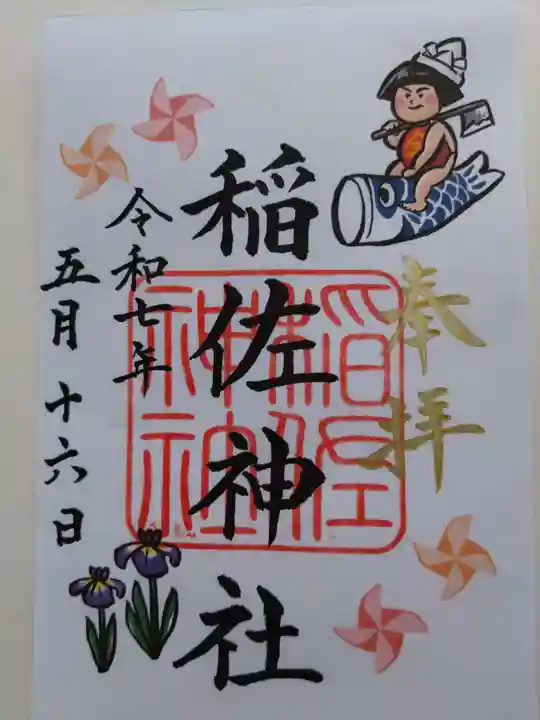 奉拝
稲佐神社
令和七年
五月十六日
稲佐
神社